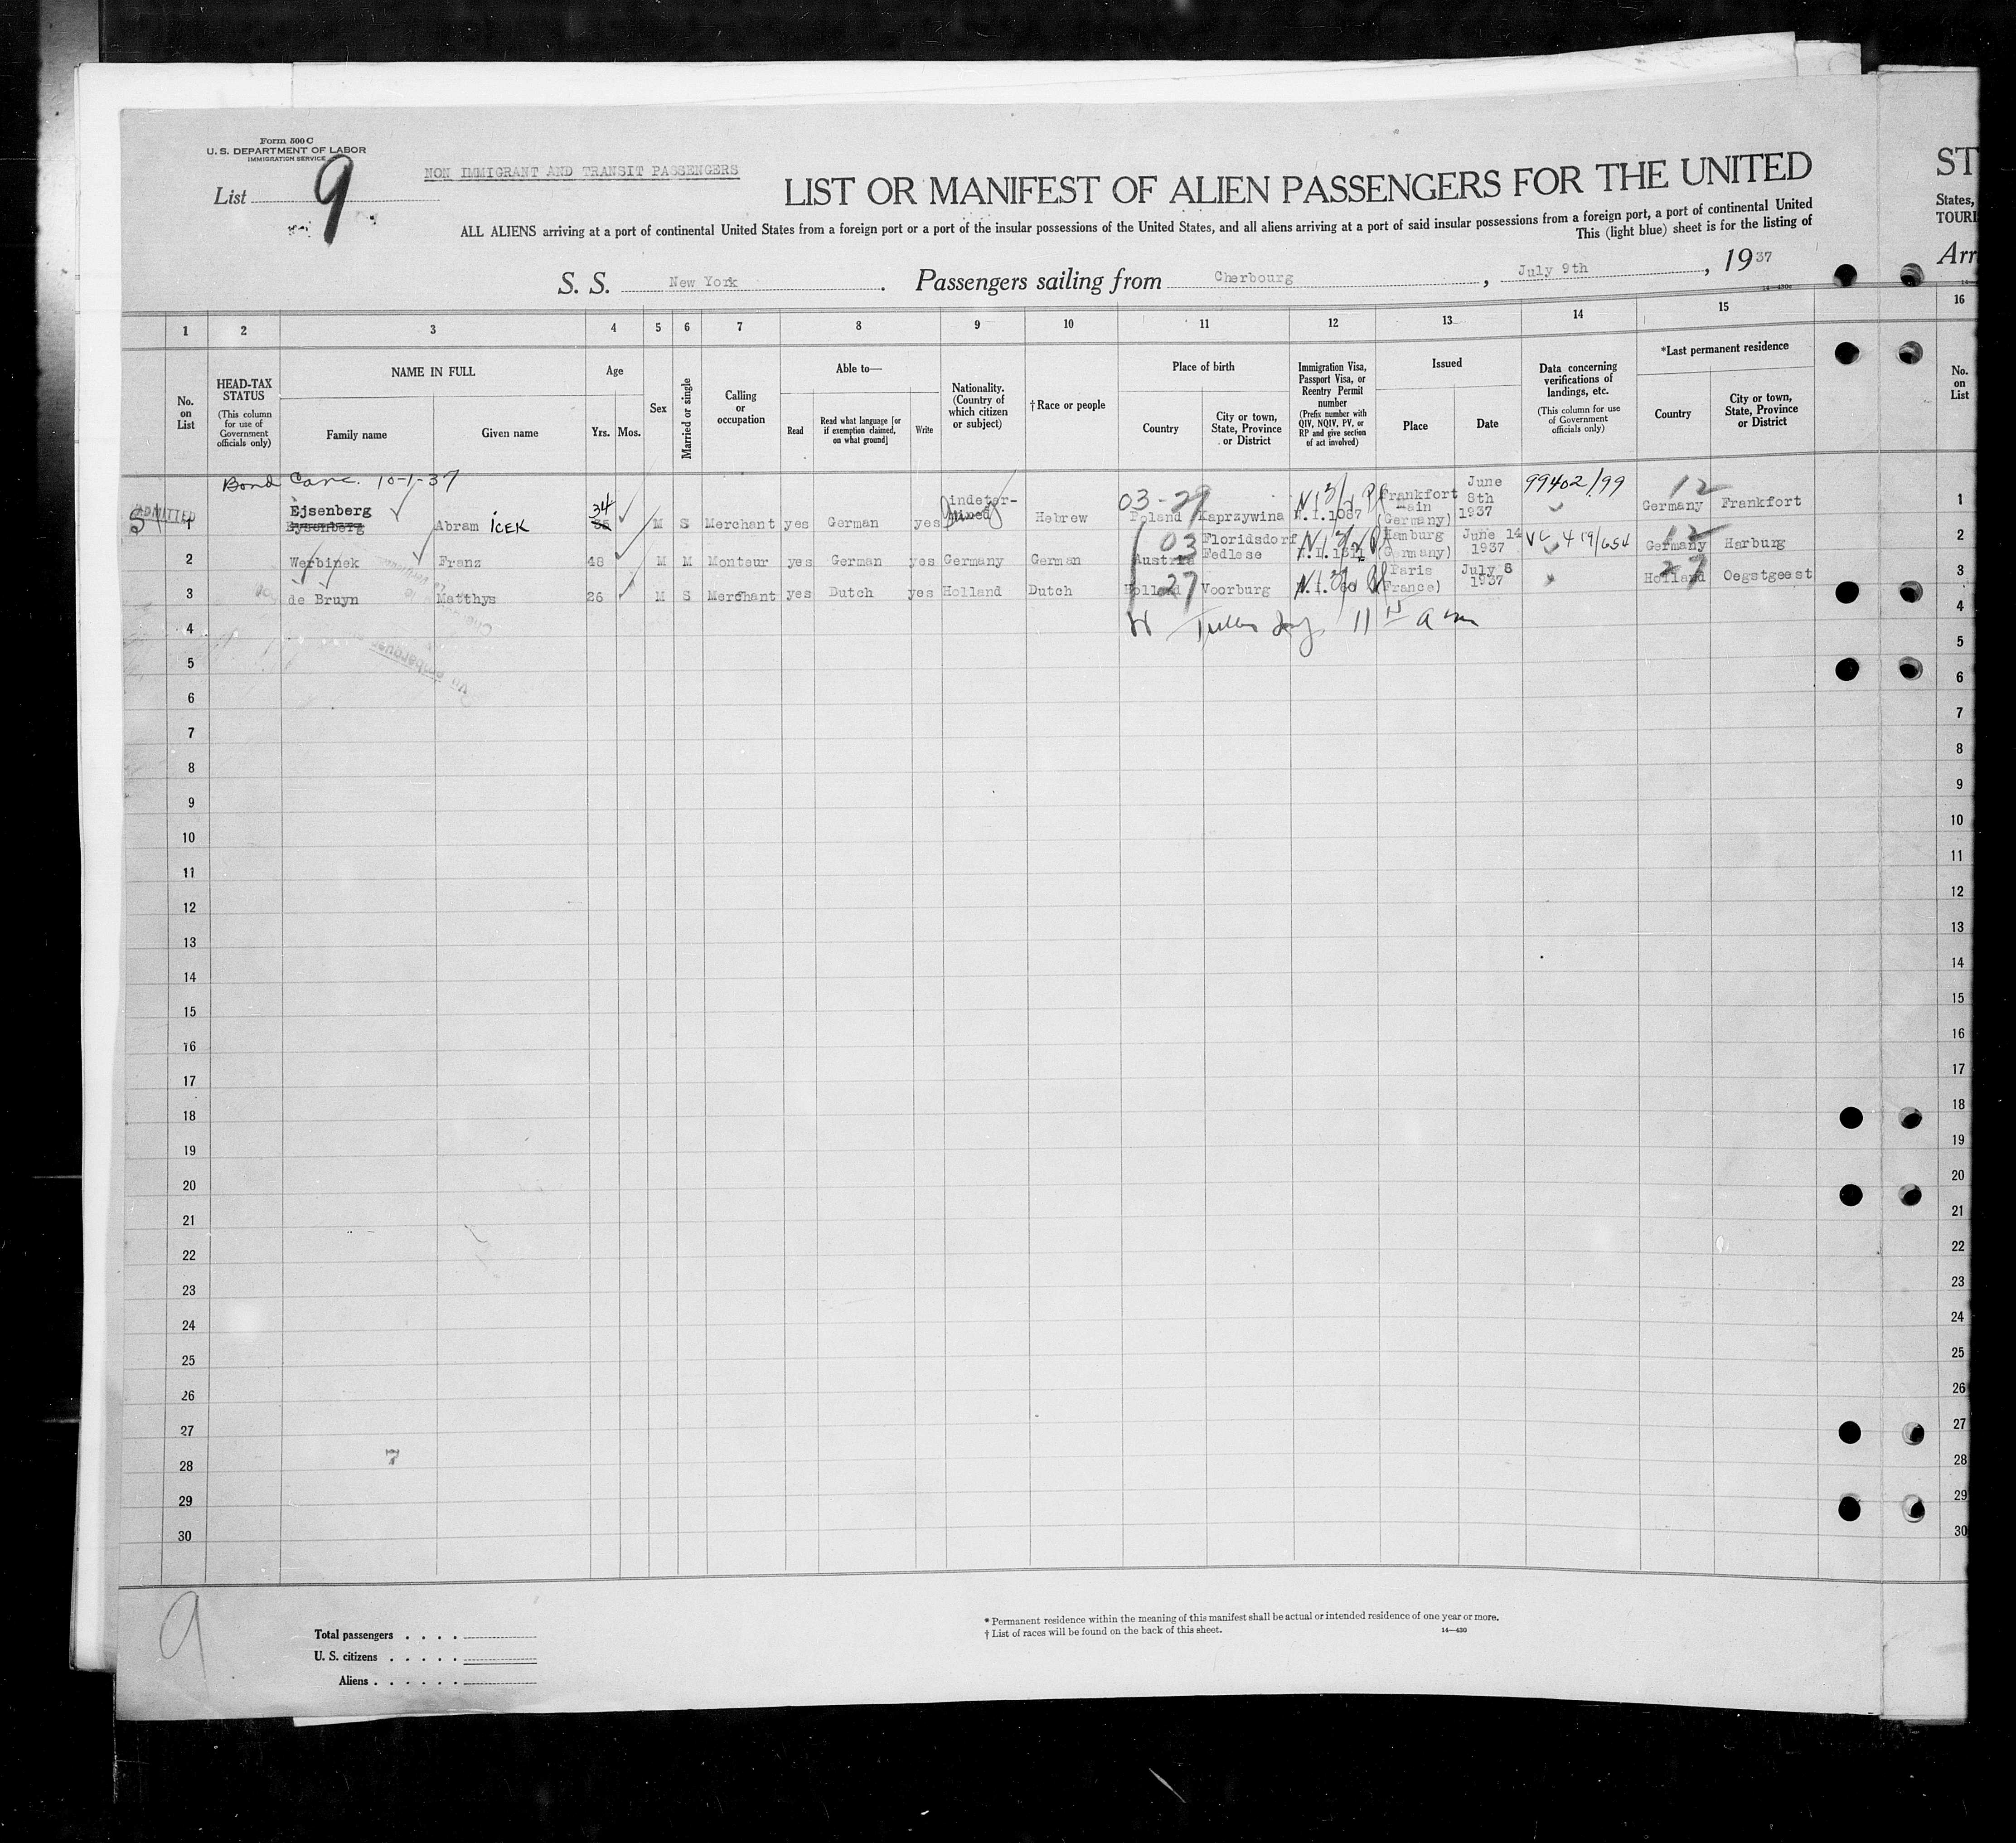 Form 500 C
U. S. DEPARTMENT OF LABOR
IMMIGRATION SERVICE
List 9
NON IMMIGRANT AND TRANSIT PASSENGERS
LIST OR MANIFEST OF ALIEN PASSENGERS FOR THE UNITED
ALL ALIENS arriving at a port of continental United States from a foreign port or a port of the insular possessions of the United States, and all aliens arriving at a port of said insular possessions from a foreign port, a port of continental United
This (light blue) sheet is for the listing of
S. S. New York. Passengers sailing from Cherbourg, July 9th, 1937
ST
States,
TOURI
Arr
1 2 3 4 5 6 7 8 9 10 11 12 13 14 15 16
No. on List
HEAD-TAX STATUS (This column for use of Government officials only)
NAME IN FULL
Family name Given name
Age
Yrs. Mos.
Sex
Married or single
Calling or occupation
Able to—
Read
Read what language [or if exemption claimed, on what ground]
Write
Nationality. (Country of which citizen or subject)
† Race or people
Place of birth
Country
City or town, State, Province or District
Immigration Visa, Passport Visa, or Reentry Permit number (Prefix number with QIV, NQIV, PV, or RP and give section of act involved)
Issued
Place Date
Data concerning verifications of landings, etc. (This column for use of Government officials only)
*Last permanent residence
Country
City or town, State, Province or District
No. on List
Bond Canc. 10-1-37
ADMITTED
1 Ejsenberg Eysenberg Abram İCEK 34 M S Merchant yes German yes indetermined Hebrew 03-29 Poland Kaprzywina N.I. 1087 Frankfort Main (Germany) June 8th 1937 99402/99 12 Germany Frankfort 1
2 Werbinek Franz 48 M M Monteur yes German yes Germany German 03 Austria Floridsdorf Fedlese Hamburg (Germany) June 14 1937 12 Germany Harburg 2
3 de Bruyn Matthys 26 M S Merchant yes Dutch yes Holland Dutch 27 Holland Voorburg N.I. 60 Paris (France) July 8 1937 27 Holland Oegstgeest 3
4 11 15 am 4
5 5
6 6
7 7
8 8
9 9
10 10
11 11
12 12
13 13
14 14
15 15
16 16
17 17
18 18
19 19
20 20
21 21
22 22
23 23
24 24
25 25
26 26
27 27
7
28 28
29 29
30 30
9
Total passengers
U. S. citizens
Aliens
* Permanent residence within the meaning of this manifest shall be actual or intended residence of one year or more.
† List of races will be found on the back of this sheet.
14—430